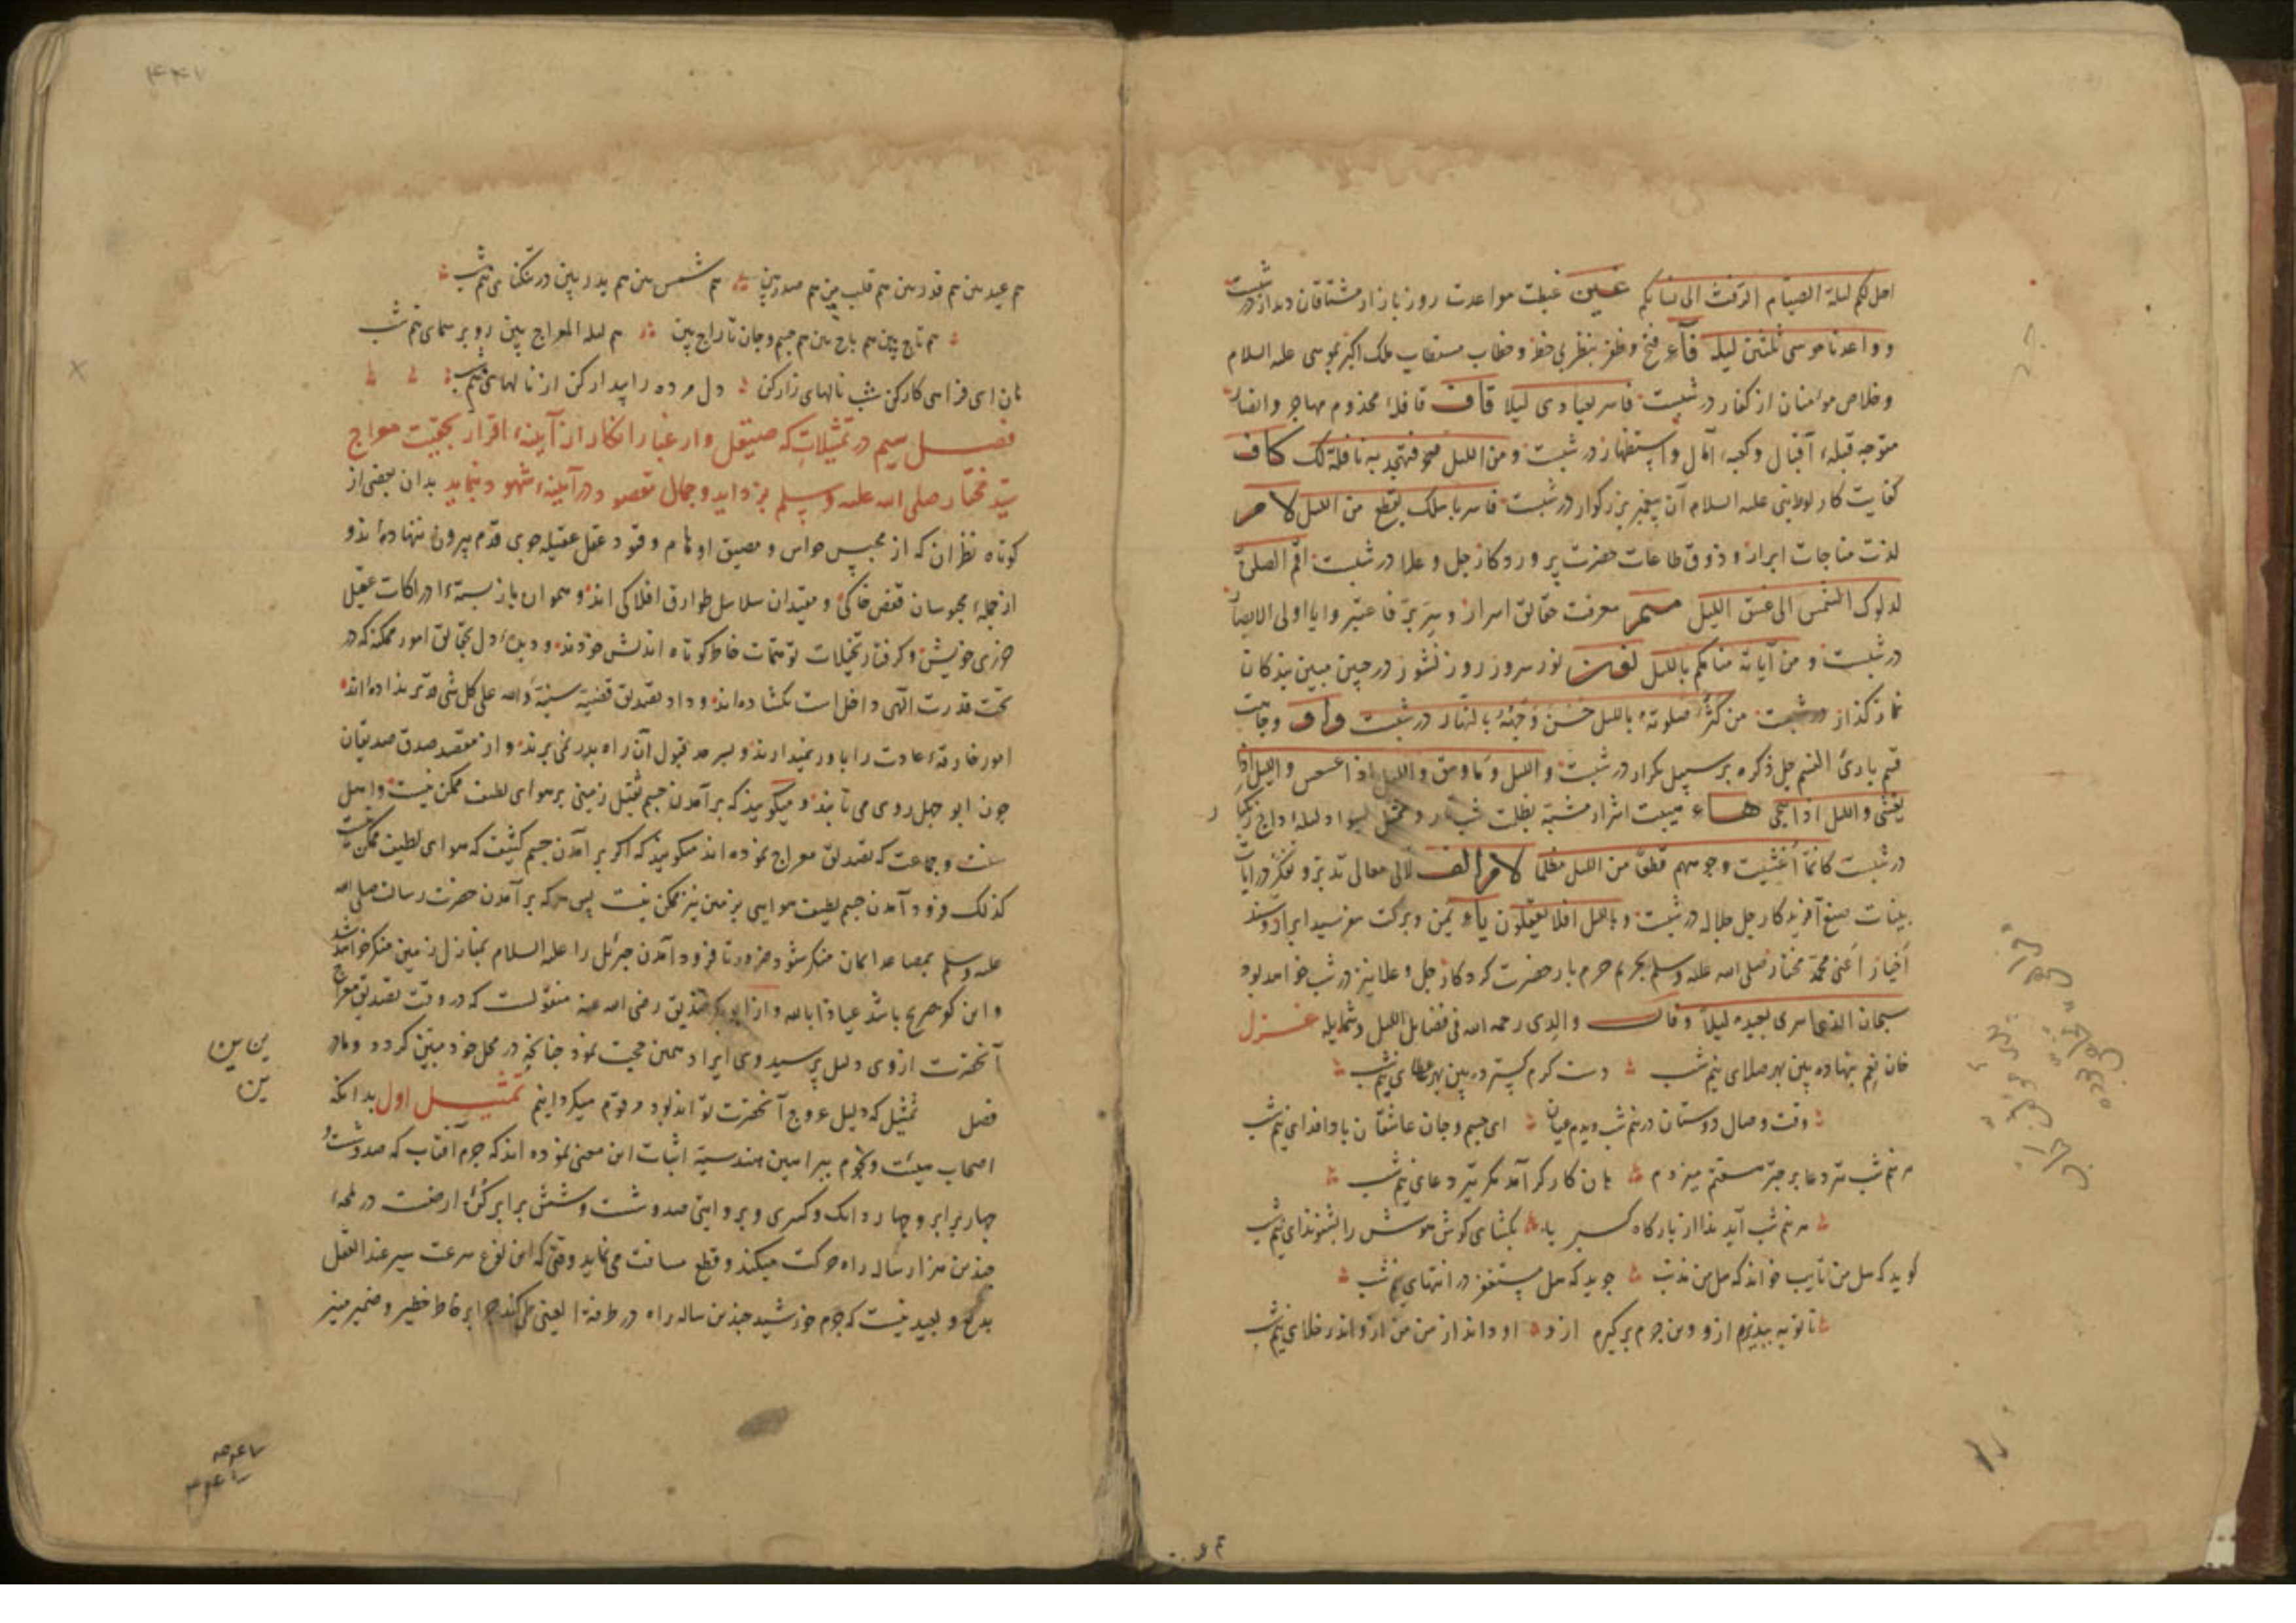 احل لکم لیلة الصیام الرفث الی نسائکم عین غبطت مواعدت روز بازار مشتاقان دیدار در شبست
و واعدنا موسی ثلثین لیلة فآء فتح وظفر بنظر بی حظر و خطاب مستطاب ملک اکبر بموسی علیه السلام
و خلاص مومنان از کفار در شبست فاسر بعبادی لیلا قاف قافلهٔ مخذوم مهاجر و انصار
متوجه قبلهٔ اقبال و کعبهٔ آمال و استظهار در شبست و من اللیل فتهجد به نافلة لک کاف
کفایت کار لوط نبی علیه السلام آن پیغمبر بزرکوار در شبست فاسر باهلک بقطع من اللیل لام
لذت مناجات ابرار و ذوق طاعات حضرت پروردکار جل و علا در شبست اقم الصلوة
لدلوک الشمس الی غسق اللیل میم معرفت حقایق اسرار و سر بر فاعتبروا یا اولی الابصار
در شبست و من آیاته منامکم باللیل نون نور سرور روز نشور در جبین مبین بندکان
نماز کذار در شبست من کثر صلوته باللیل حسن وجهه بالنهار در شبست واو وجاهت
قسم بارئ النسم جل ذکره بر سبیل تکرار در شبست و اللیل و ما وسق و اللیل اذا عسعس و اللیل اذا
یغشی و اللیل اذا سجی هاء هیبت اشرار مشبه بظلمت شب تار و ممثل بسواد لیلهٔ داج
در شبست کانما اغشیت وجوههم قطعا من اللیل مظلما لام الف لآلی معالی تدبر و تفکر در آیات
بینات صنع آفریدکار جل جلاله در شبست و باللیل افلا تعقلون یاء یمن و برکت سفر سید ابرار و سند
اخیار اعنی محمد مختار صلی الله علیه و سلم بحریم حرم بار حضرت کردکار جل و علا نیز در شب خواهد بود
سبحان الذی اسری بعبده لیلا و قال والدی رحمه الله فی فضایل اللیل و شمایله غزل
خان نعم بنهاده بین بهر صلای نیم شب دست کرم کسترده بین بهر عطای نیم شب
وقت وصال دوستان در نیم شب دیدم عیان ای جسم و جان عاشقان بادا فدای نیم شب
هر نیم شب تیر دعا بر چتر میزدم هان کارکر آمد مکر تیر دعای نیم شب
هر نیم شب آید ندا از بارکاه کبریا بکشای کوش هوش را بشنو ندای نیم شب
کوید که هل من تایب خواند که هل من مذنب جوید که هل مستغفر در انتهای نیم شب
تا توبه بپذیرم ازو وین جرم برکیرم ازو او داند از من من ازو اندر خلای نیم شب
هم عید بین هم قدر بین هم قلب بین هم صدر بین هم شمس بین هم بدر بین در تنکنای نیم شب
هم تاج بین هم باج بین هم جسم و جان تاراج بین هم لیلة المعراج بین رو بر سمای نیم شب
هان ای فراهی کار کن شب نالهای زار کن دل مرده را بیدار کن از نالهای نیم شب
فصل سیم در تمثیلات که صیقل وار غبار انکار از آینهٔ اقرار بحقیت معراج
سید مختار صلی الله علیه و سلم بزداید و جمال مقصود در آینهٔ شهود بنماید بدان بعضی از
کوتاه نظران که از محبس حواس و مضیق اوهام و قیود عقل عقیله جوی قدم بیرون ننهاده اند و
از جملهٔ محبوسان قفص خاکی و مقیدان سلاسل طوارق افلاکی اند و هموان باز بستهٔ ادراکات عقیل
جزوی خویش و کرفتار تخیلات توهمات خاطر کوتاه اندیش خودند و دیدهٔ دل بحقایق امور ممکنه که در
تحت قدرت الهی داخل است نکشاده اند و داد تصدیق قضیهٔ سنیهٔ والله علی کل شئ قدیر نداده اند
امور خارقهٔ عادت را باور نمیدارند و بسرحد قبول آن راه بدر نمی برند و از مقصد صدق صدیقان
چون ابو جهل روی می تابند و میکویند که بر آمدن جسم ثقیل زمینی بر هوای لطیف ممکن نیست و اهل
سنت و جماعت که تصدیق معراج نموده اند میکویند که اکر بر آمدن جسم کثیف که هوای لطیف ممکن نیست
کذلک فرود آمدن جسم لطیف هوایی بزمین نیز ممکن نیست پس هرکه بر آمدن حضرت رسالت صلی الله
علیه و سلم بمصاعد ایمان منکر شود ضرورتا فرود آمدن جبرئیل را علیه السلام بمنازل زمین منکر خواهد شد
و این کفر صریح باشد عیاذا بالله و از ابو بکر صدیق رضی الله عنه منقولست که در وقت تصدیق معراج
آنحضرت ازوی دلیل پرسیدند وی ایراد همین حجت نمود چنانچه در محل خود مبین کردد و ما در
فصل تمثیل که دلیل عروج آنحضرت تواند بود مرقوم میکردانیم تمثیل اول بدانکه
اصحاب هیئت و نجوم ببراهین هندسیه اثبات این معنی نموده اند که جرم آفتاب که صد و شصت و
چهار برابر و چهار دانک و کسری و بروایتی صد و شصت و شش برابر کرهٔ ارضست در لمحهٔ
چندین هزار ساله راه حرکت میکند و قطع مسافت می نماید وقتی که این نوع سرعت سیر عند العقل
بدیع و بعید نیست که جرم خورشید چندین ساله راه در طرفة العینی طی کند چرا بر خاطر خطیر و ضمیر منیر